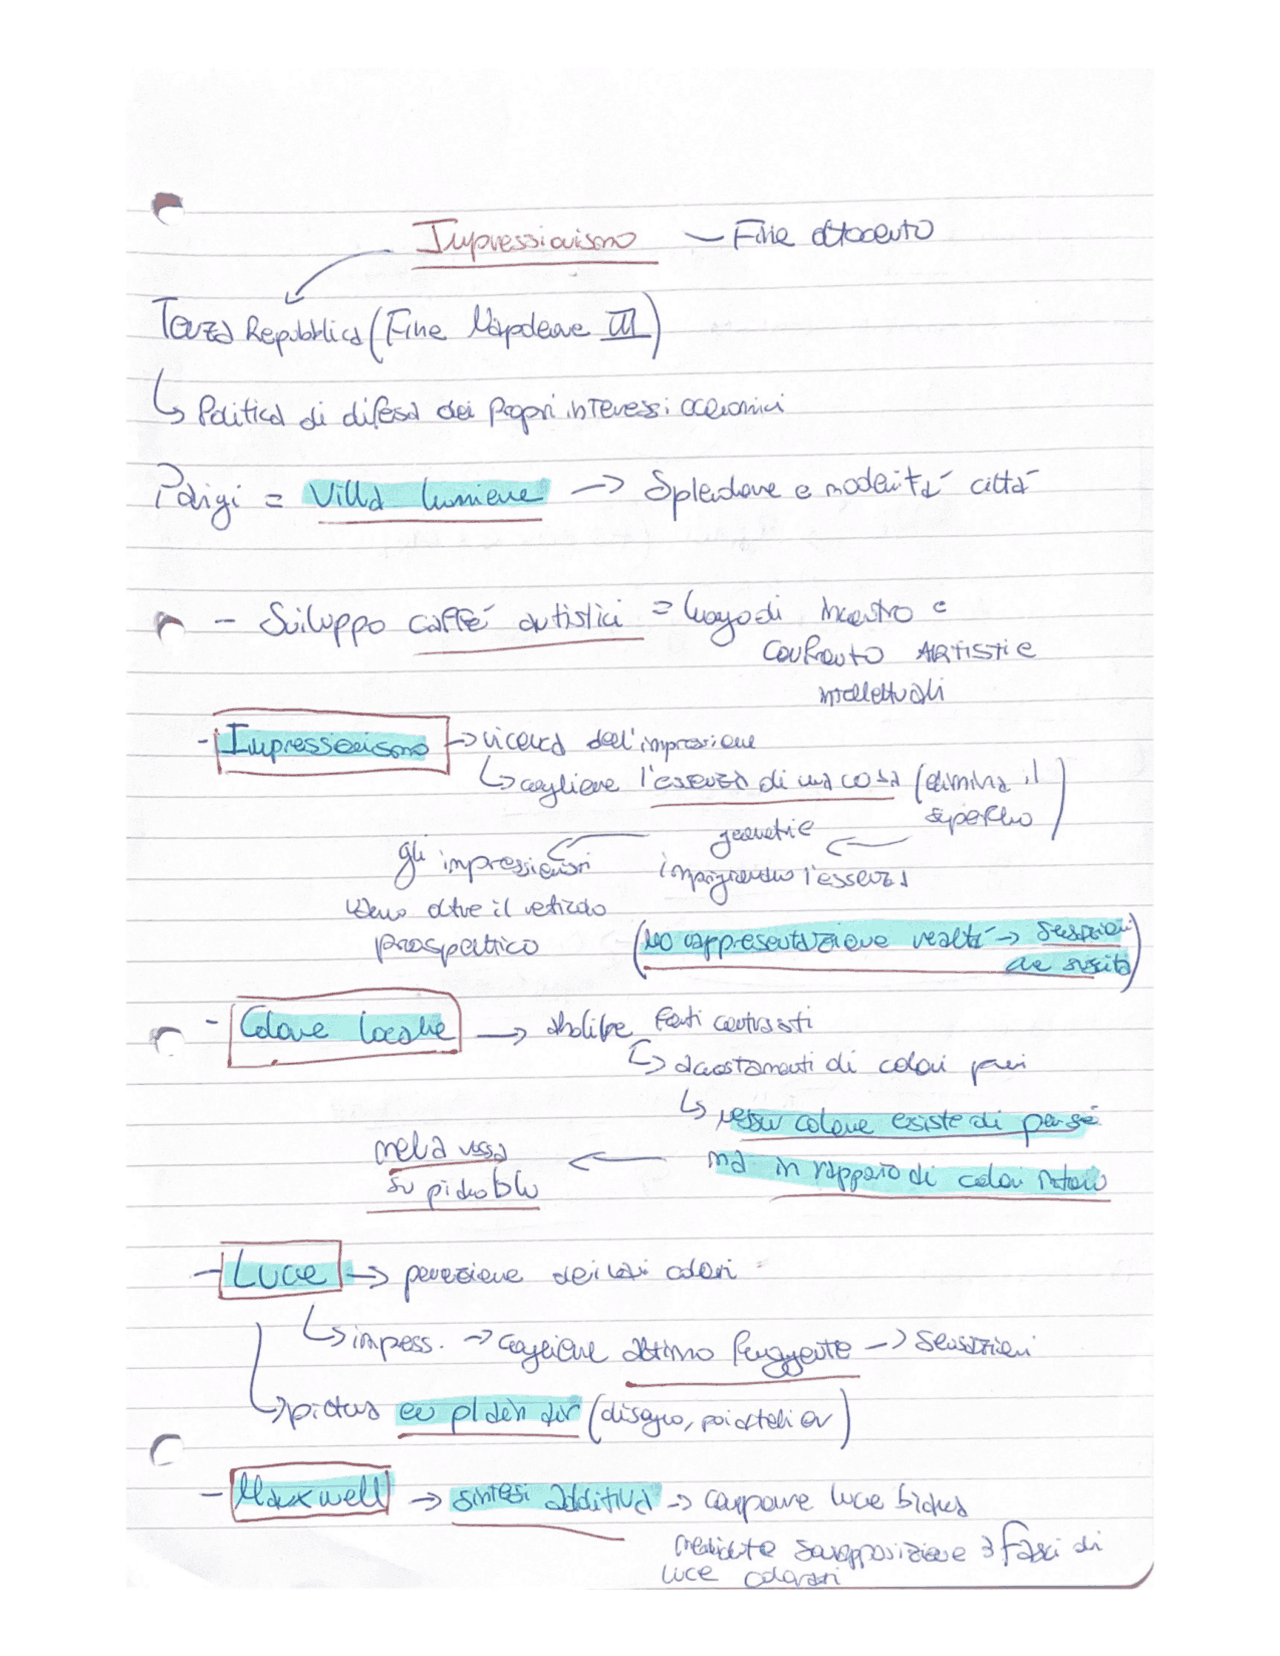 Impressionismo — Fine ottocento
Terza Repubblica (Fine Napoleone III)
↳ Politica di difesa dei propri interessi economici
Parigi = Villa lumiere → Splendore e modernità città
- Sviluppo caffè artistici = luogo di incontro e
confronto ARTISTI E
intellettuali
- Impressionismo → ricerca dell'impressione
↳ cogliere l'essenza di una cosa (elimina il
superfluo)
geometrie
gli impressionisti
imprigionano l'essenza
vanno oltre il reticolo
prospettico
(no rappresentazione realtà → sensazioni
che suscita)
- Colore locale → abolire forti contrasti
↳ accostamenti di colori puri
↳ nessun colore esiste di per sé
ma in rapporto di colori
mela rossa
su piatto blu
- Luce → percezione dei vari colori
↳ impress. → cogliere attimo fuggente → sensazioni
↳ pittura en plain air (disegno, poi atelier)
- Maxwell → sintesi additiva → comporre luce bianca
mediante sovrapposizione 3 fasci di
luce colorati